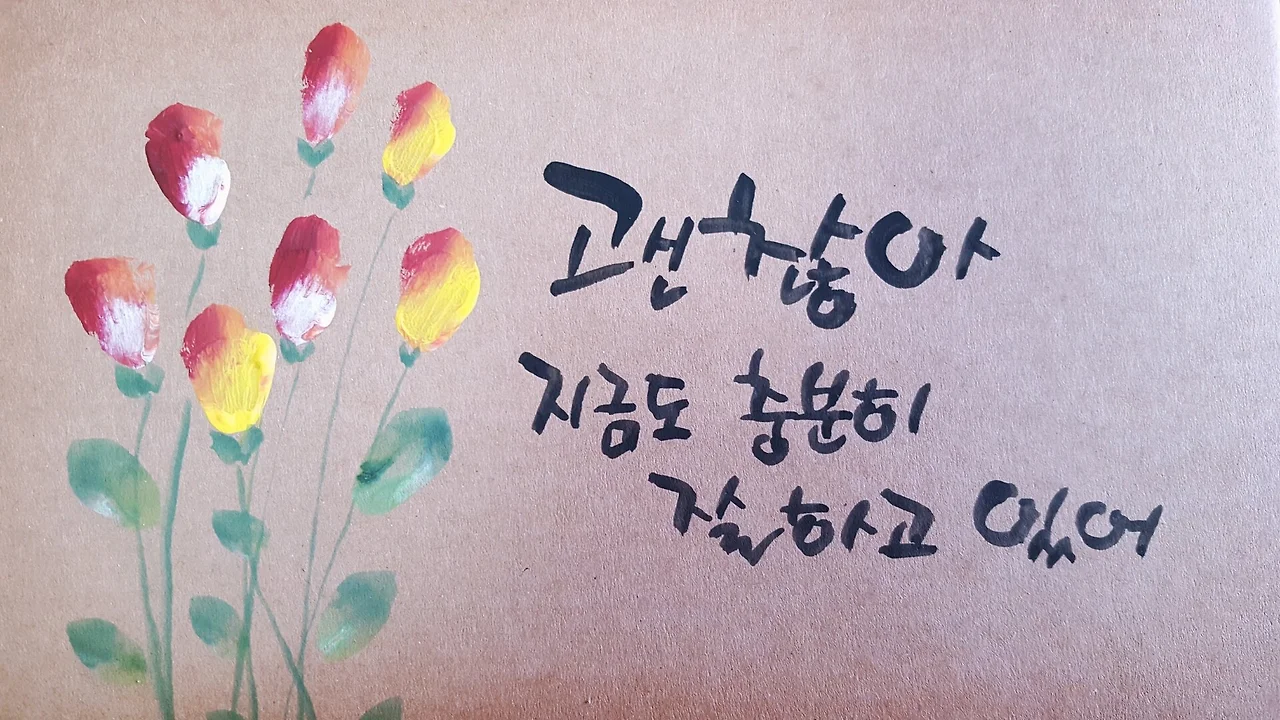 괜찮아
지금도 충분히
잘하고 있어